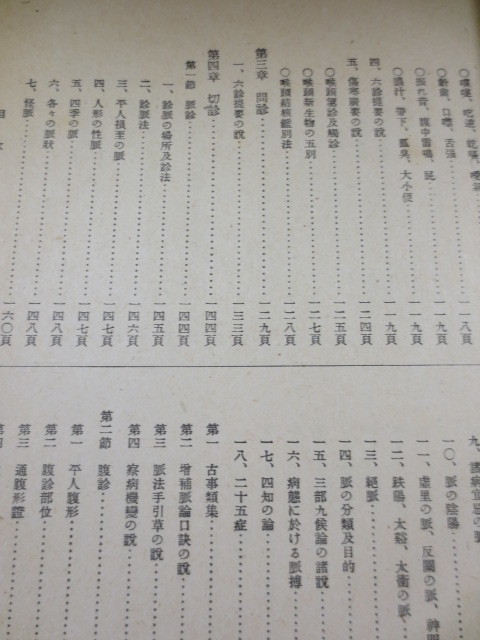 齒齦、口噤、舌强………一一九頁
〇振れ音、腹中雷鳴、屁………一一九頁
〇盜汗、帶下、狐臭、大小便………一一九頁
四、六診提要の說………一二四頁
五、傷寒廣要の說………一二五頁
〇喉頭望診及觸診………一二七頁
〇喉頭新生物の五別………一二八頁
〇喉頭結核鑑別法………一二九頁
第三章 問診
一、六診提要の說………一三三頁
第四章 切診………一四四頁
第一節 脈診………一四四頁
一、診脈の場所及診法………一四五頁
二、診脈法………一四六頁
三、平人損至の脈………一四七頁
四、人形の性脈………一四七頁
五、四季の脈………一四八頁
六、各々の脈狀………一四八頁
七、怪脈………一六〇頁
一〇、脈の陰陽
一一、虛里の脈、反關の脈、神門
一二、趺陽、太谿、太衝の脈
一三、絕脈
一四、脈の分類及目的
一五、三部九候論の諸說
一六、病態に於ける脈搏
一七、四知の論
一八、二十五症
第一 古事類集
第二 增補脈論口訣の說
第三 脈法手引草の說
第四 察病機變の說
第二節 腹診
第一 平人腹形
第二 腹診部位
第三 通腹形證